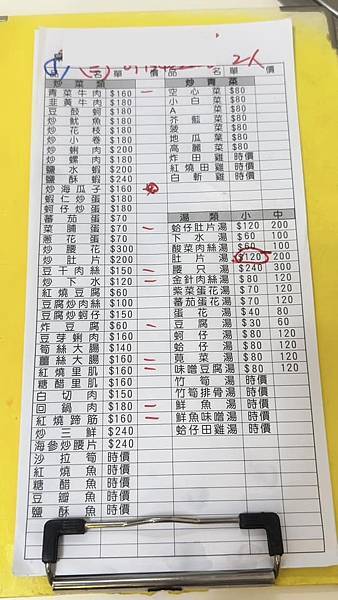 2人
品 名 單 價
炒 菜 類
青菜牛肉 $160 一
韭黃牛肉 $180
豆豉蚵 $180
炒魷魚 $180
炒花枝 $180
炒小卷 $180
炒蜊肉 $200
炒螺肉 $180
鹽水蝦 $200
鹽酥蝦 $240
炒海瓜子 $160
蝦仁炒蛋 $180
蚵仔炒蛋 $180
蕃茄蛋 $70
菜脯蛋 $70 一
蔥花蛋 $70
炒腰花 $300
炒肚片 $200
豆干肉絲 $150 一
炒下水 $120 一
紅燒豆腐 $60
豆腐炒肉絲 $100
豆腐炒蚵仔 $150
炸豆腐 $60 一
豆芽蜊肉 $160
筍絲大腸 $140
薑絲大腸 $160 一
紅燒里肌 $160 一
糖醋里肌 $160
白切肉 $150
回鍋肉 $180 一
紅燒蹄筋 $160 一
炒三鮮 $240
海參炒腰片 $240
沙拉筍 時價
紅燒魚 時價
糖醋魚 時價
豆瓣魚 時價
鹽酥魚 時價
品 名 單 價
炒 青 菜
空心菜 $80
小白菜 $80
A菜 $80
芥藍菜 $80
菠菜 $80
地瓜葉 $80
高麗菜 $80
炸田雞 時價
紅燒田雞 時價
白斬雞 時價
湯 類 小 中
蛤仔肚片湯 $120 200
下水湯 $60 100
酸菜肉絲湯 $60 100
肚片湯 $120 200
腰只湯 $240 300
金針肉絲湯 $80 120
紫菜蛋花湯 $70 120
蕃茄蛋花湯 $70 120
蛋花湯 $40 80
豆腐湯 $30 60
蚵仔湯 $80 120
蛤仔湯 $80 120
莧菜湯 $80 120
味噌豆腐湯 $80 120
竹筍湯 時價
竹筍排骨湯 時價
鮮魚湯 時價
鮮魚味噌湯 時價
蛤仔田雞湯 時價